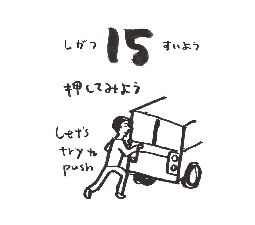 しがつ 15 すいよう
押してみよう
Let's
try to
push